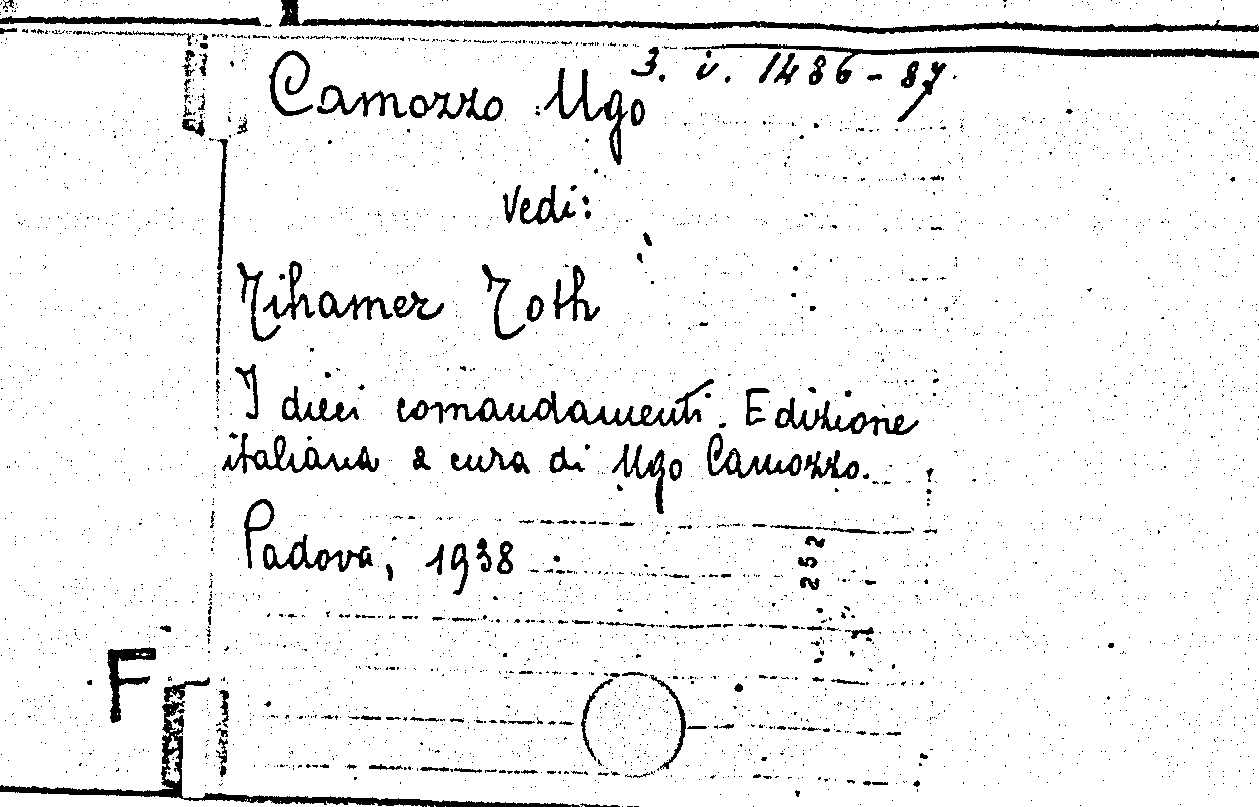 3. i. 1486-87
Camozzo Ugo
Vedi:
Tihamer Toth
I dieci comandamenti. Edizione
italiana a cura di Ugo Camozzo.
Padova, 1938
252
F